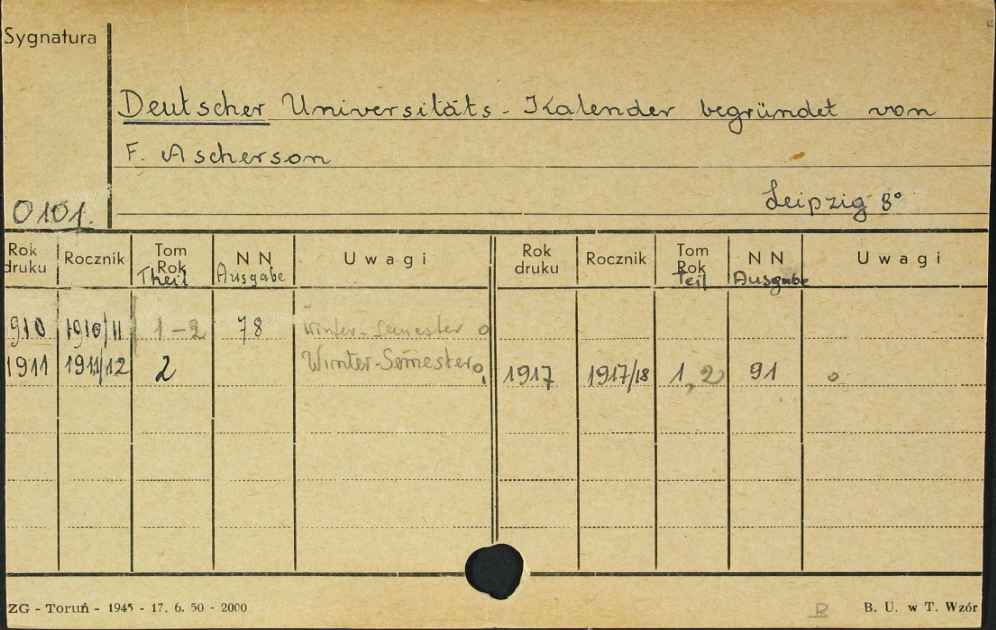 Sygnatura
Deutscher Universitäts-Kalender begründet von
F. Ascherson
Leipzig 8°
0101.
Rok druku | Rocznik | Tom Rok Theil | NN Ausgabe | Uwagi | Rok druku | Rocznik | Tom Rok Teil | NN Ausgabe | Uwagi
910 | 1910/11 | 1-2 | 78 | Winter-Semester o
1911 | 1911/12 | 2 | Winter-Semester o | 1917 | 1917/18 | 1, 2 | 91 | o
ZG - Toruń - 1945 - 17. 6. 50 - 2000
B. U. w T. Wzór